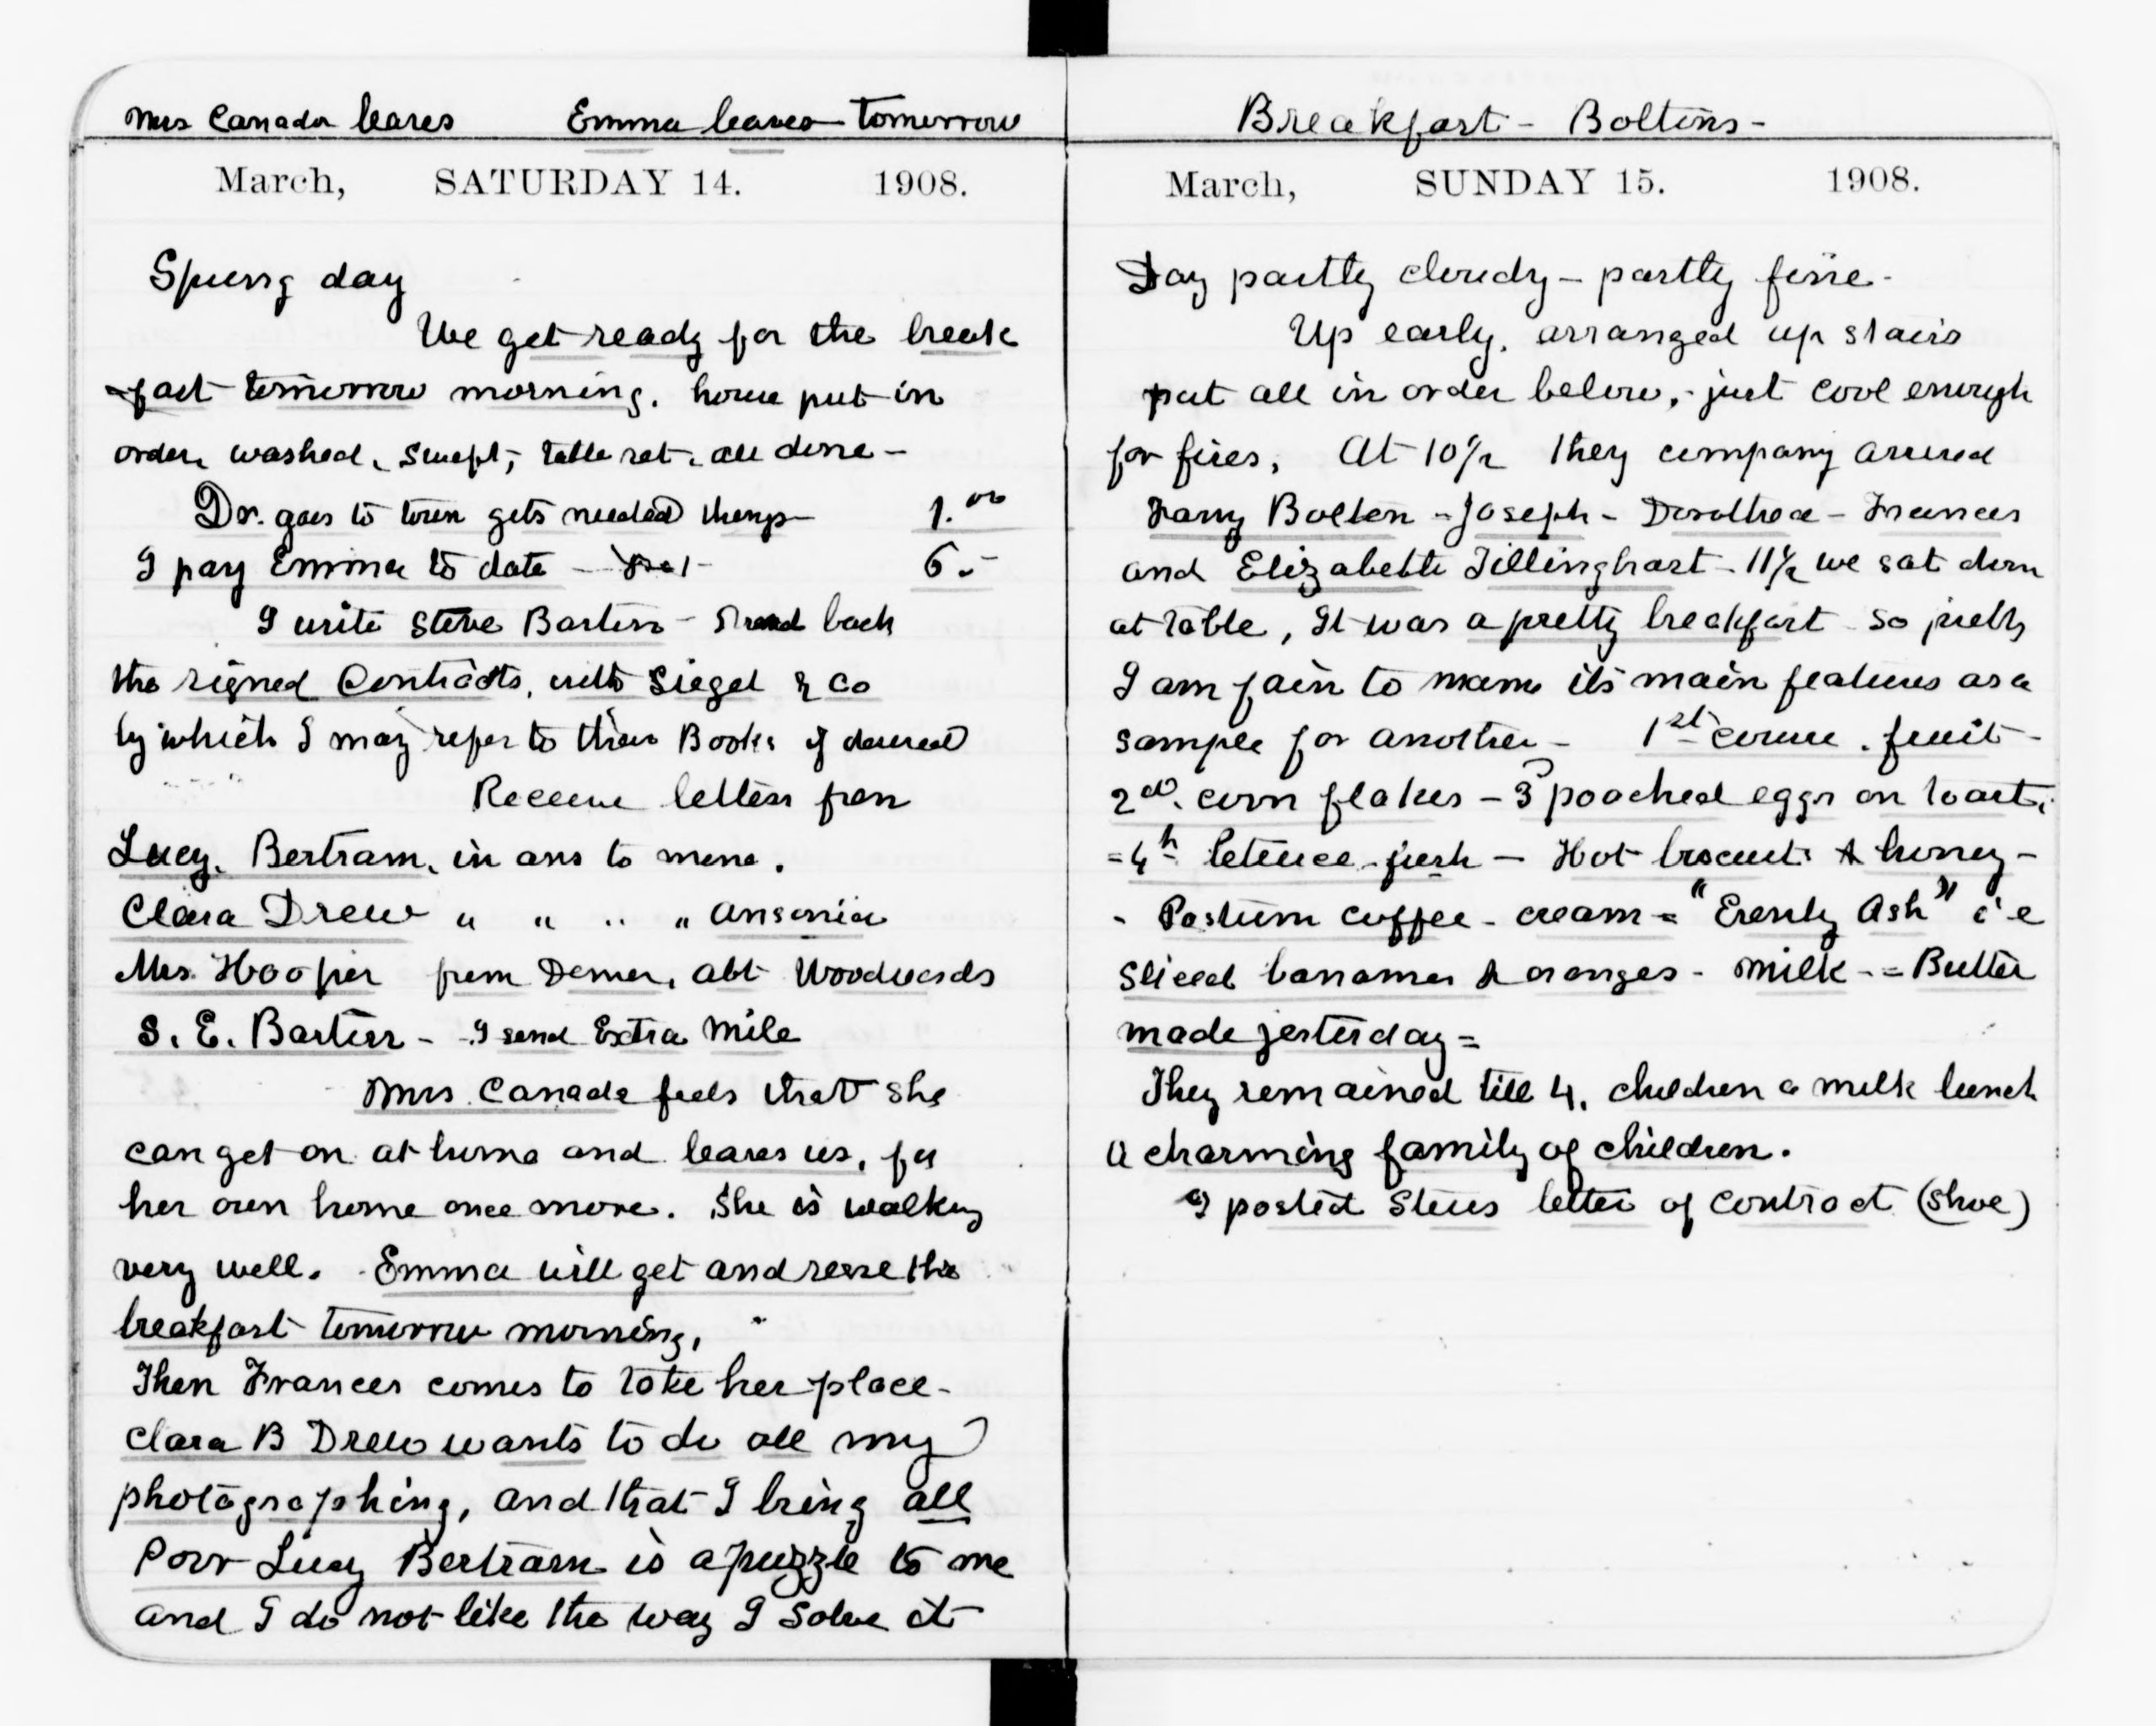 Mrs Canada leaves Emma leaves tomorrow
March, SATURDAY 14. 1908.
Spring day
We get ready for the break
fast tomorrow morning. house put in
order, washed, swept, table set, all done -
Dr. goes to town gets needed things 1.00
I pay Emma to date - 6.-
I write Steve Barton - send back
the signed Contracts, with Siegel & Co
by which I may refer to their Books if desired
Receive letters from
Lucy, Bertram, in ans to mine.
Clara Drew " " " " Ansonia
Mrs. Hooper from Denver, abt Woodwards
S. E. Barton - I send Extra Mile
Mrs Canada feels that she
can get on at home and leaves us, for
her own home once more. She is walking
very well. Emma will get and serve the
breakfast tomorrow morning,
Then Frances comes to take her place -
Clara B Drew wants to do all my
photographing, and that I bring all
Poor Lucy Bertram is a puzzle to me
and I do not like the way I solve it
Breakfast - Boltons -
March, SUNDAY 15. 1908.
Day partly cloudy - partly fine -
Up early, arranged up stairs
put all in order below, - just cool enough
for fires, At 10 1/2 they company arrived
Fanny Bolton - Joseph - Dorothea - Frances
and Elizabeth Tillinghast - 11 1/2 we sat down
at table, It was a pretty breakfast so pretty
I am fain to name its main features as a
sample for another - 1st course, fruit -
2nd. corn flakes - 3 poached eggs on toast,
= 4th letuce fresh - Hot biscuit & honey -
- Postum coffee - cream = " Ash" i e
sliced bananas & oranges - milk - = Butter
made yesterday =
They remained till 4, children a milk lunch
A charming family of children.
I posted Steves letter of contract (Shoe)